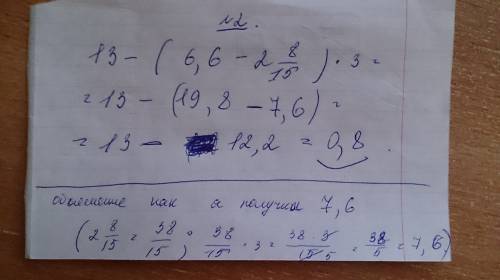 №2.
13 - (6,6 - 2 8/15) · 3 =
= 13 - (19,8 - 7,6) =
= 13 - 12,2 = 0,8.
объяснение как я получил 7,6
(2 8/15 = 38/15; 38/15 · 3 = 38·3/15 5 = 38/5 = 7,6)